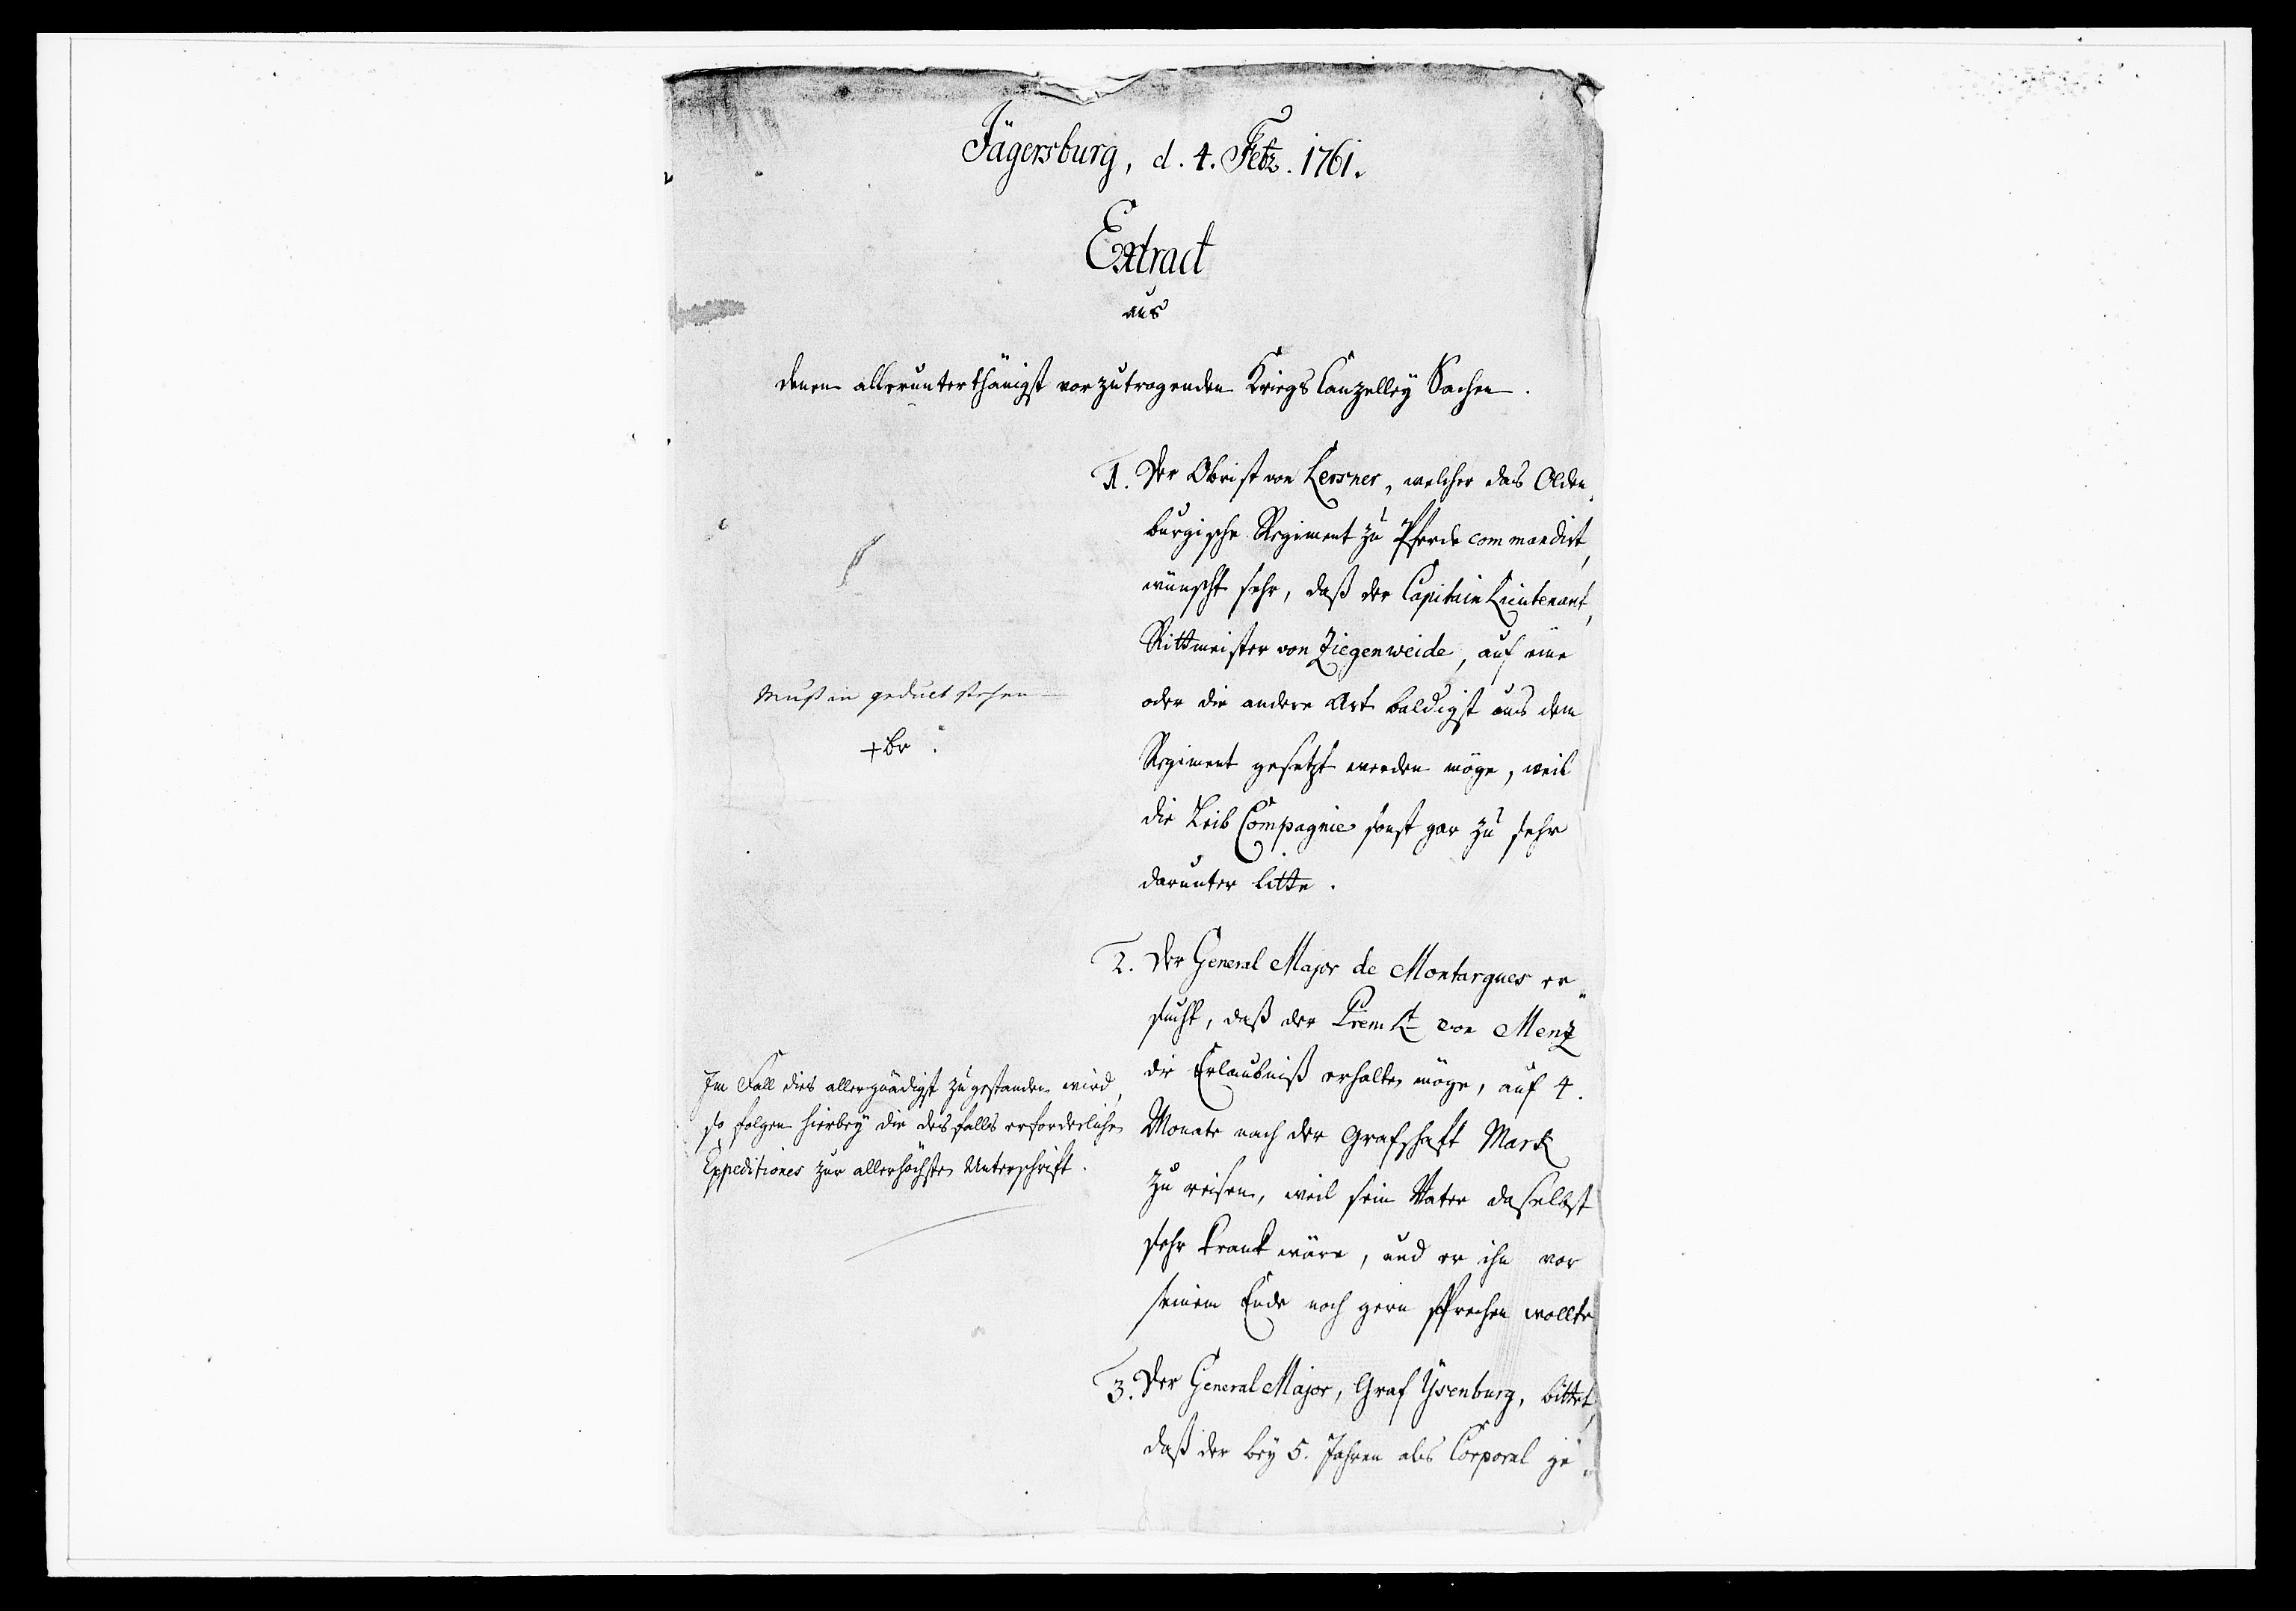 Jägersburg, d. 4. Febr. 1761.
Extract
aus
denen allerunterthänigst vorzutragenden Kriegs Canzelley Sachen.
1. Der Obrist von Lersner, welcher das Olden-
burgische Regiment zu Pferde commandirt,
wünscht sehr, daß der Capitain Lieutenant,
Rittmeister von Ziegenweide, auf eine
oder die andere Art baldigst aus dem
Regiment gesetzt werden möge, weil
die Leib Compagnie sonst gar zu sehr
darunter litte.
Muß in gedult stehen
2. Der General Major de Montargues er-
sucht, daß der Prem Lt von Menz
die Erlaubniß erhalten möge, auf 4.
Monate nach der Grafschaft Mark
zu reisen, weil sein Vater daselbst
sehr krank wäre, und er ihn vor
seinem Ende noch gern sprechen wollte
Im Fall dies allergnädigst zugestanden wird,
so folgen hierbey die desfalls erforderliche
Expeditiones zur allerhöchsten Unterschrift.
3. Der General Major, Graf Ysenburg, bittet,
daß der bey 5. Jahren als Corporal ge-